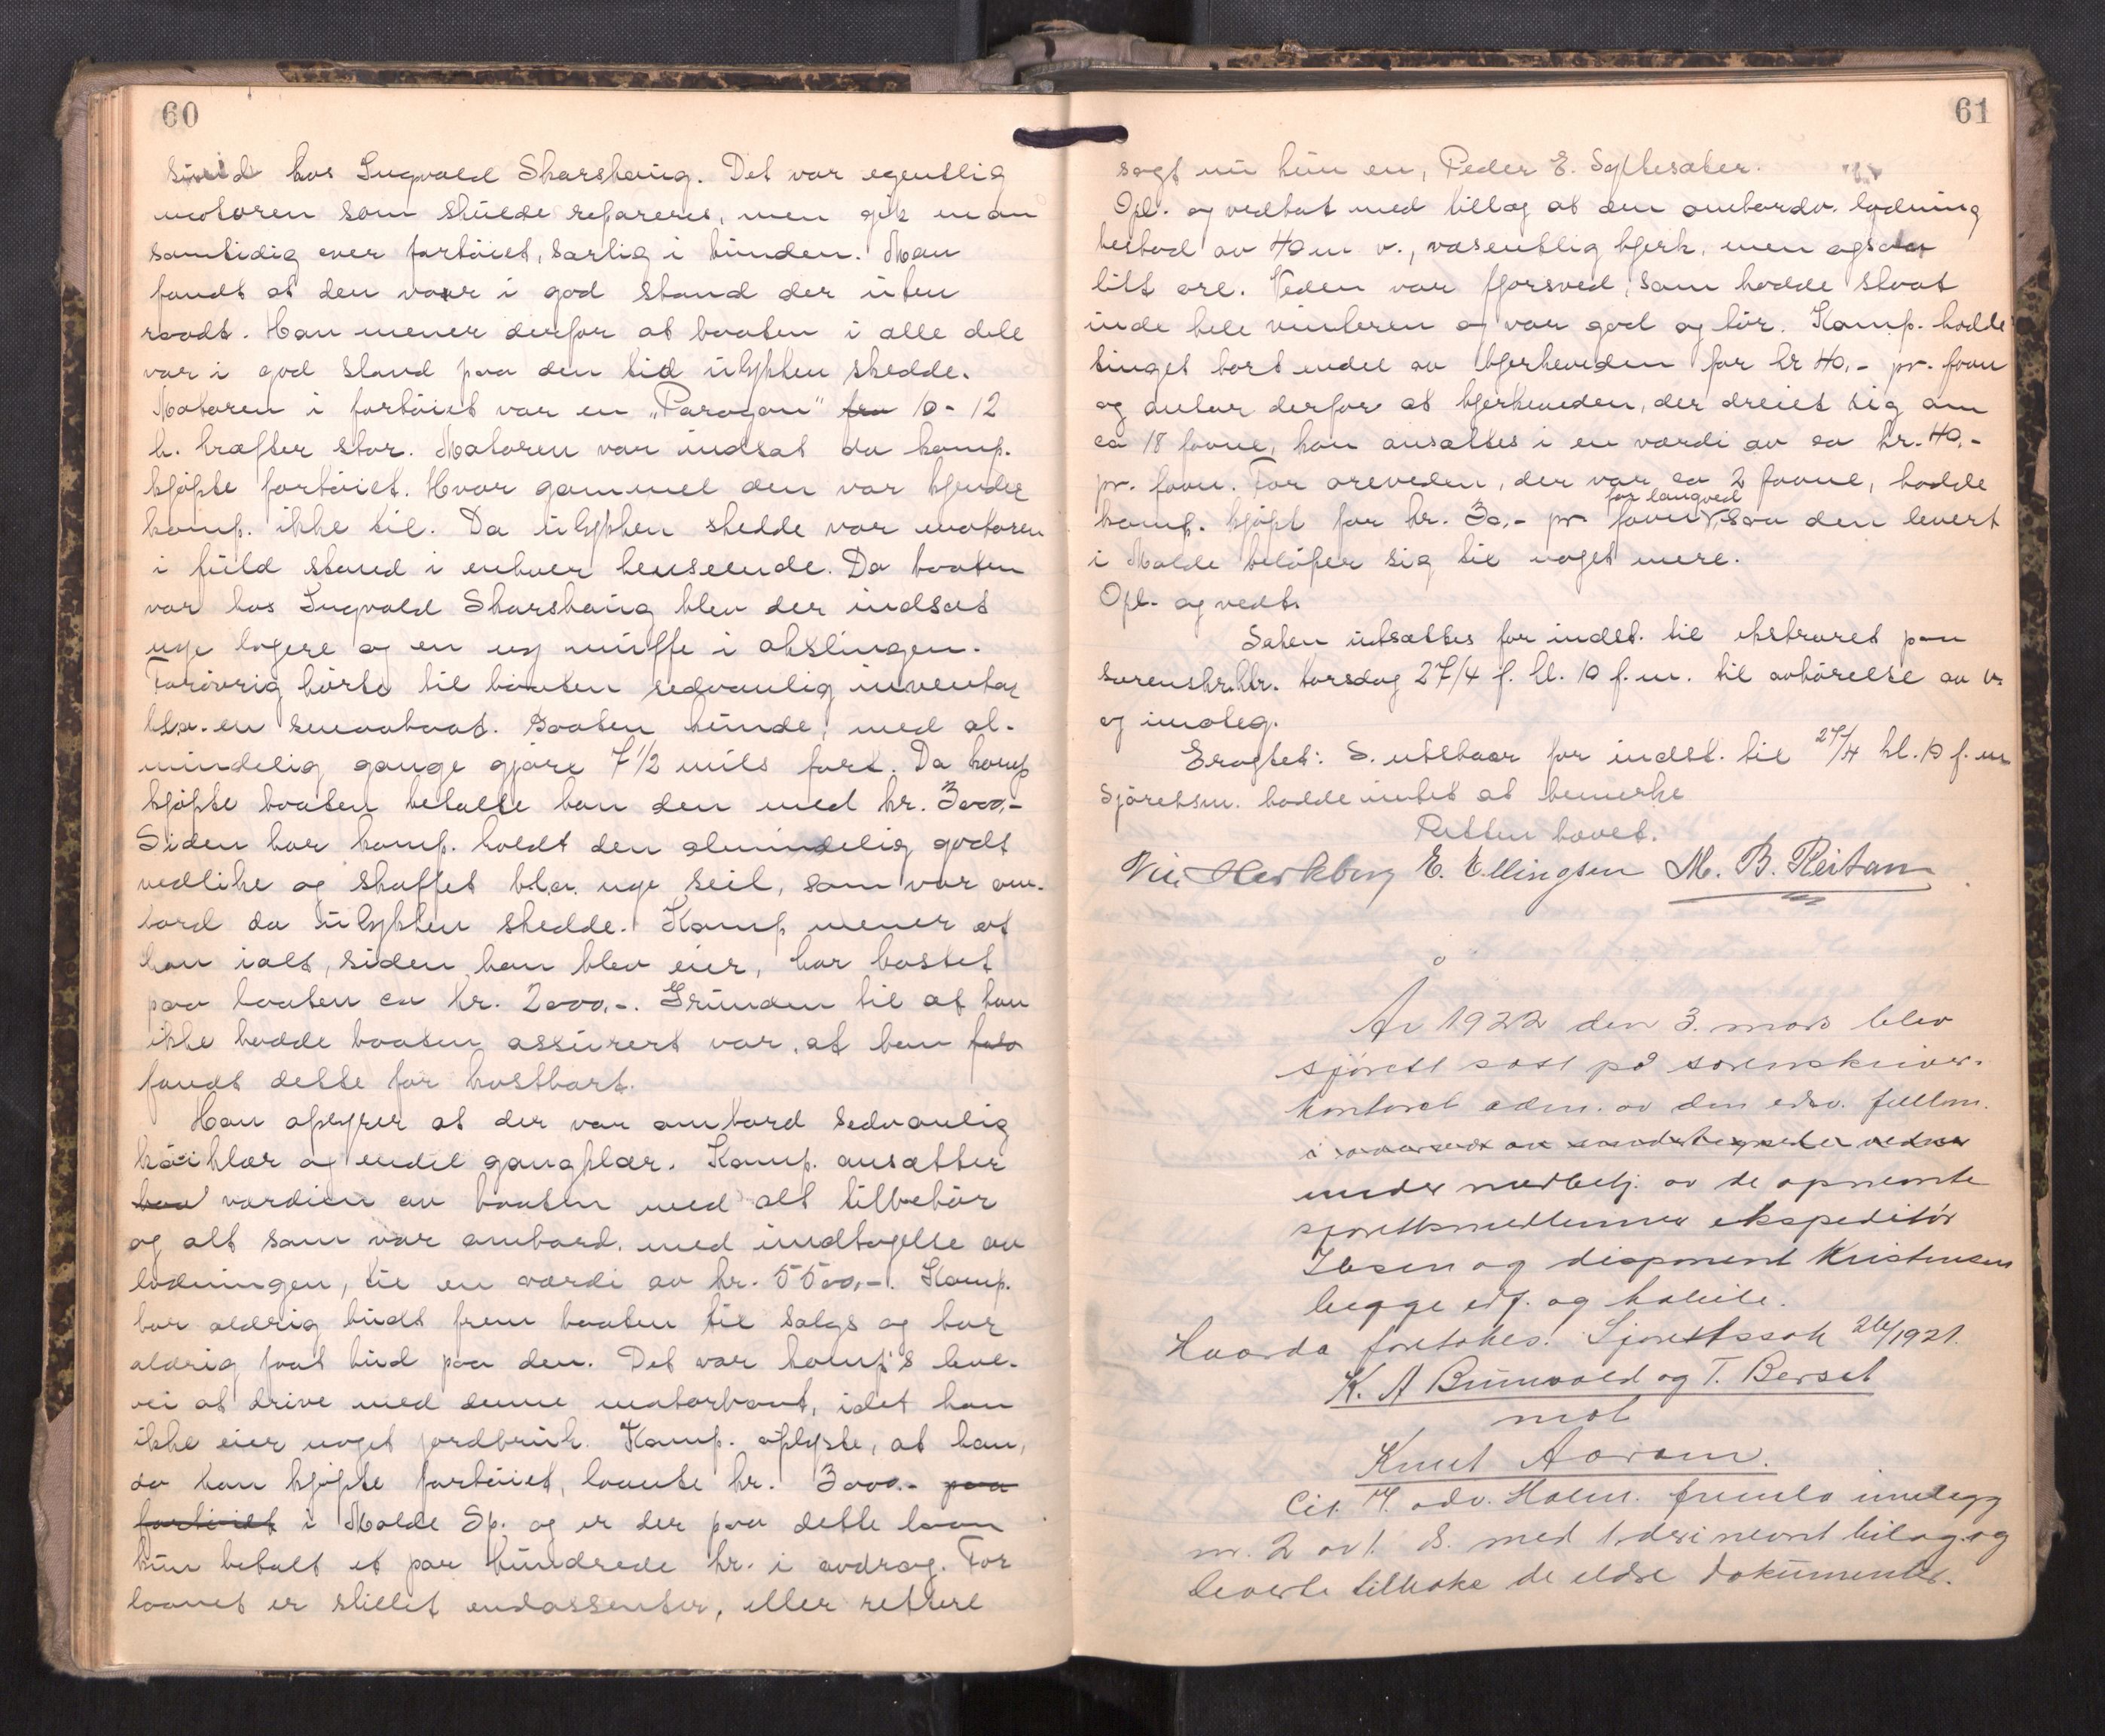 60
hos Ingvald Skarshaug. Det var egentlig
motoren som skulde repareres, men gik man
samtidig over fartöiet, særlig i bunden. Man
fandt at den var i god stand der uten
raadt. Han mener derfor at baaten i alle dele
var i god stand paa den tid ulykken skedde.
Motoren i fartöiet var en „Paragon" fra 10-12
h. kræfter stor. Motoren var indsat da komp.
kjöpte fartöiet. Hvor gammel den var kjender
komp. ikke til. Da ulykken skedde var motoren
i fuld stand i enhver henseende. Da baaten
var hos Ingvald Skarshaug blev der indsat
nye lagere og en ny muffe i akslingen.
Forövrig hörte til baaten sedvanlig inventar
bl.a. en smaabaat. Baaten kunde, med al-
mindelig gange gjöre 7 1/2 mils fart. Da komp
kjöpte baaten betalte han den med kr. 3000,-
Siden har komp. holdt den almindelig godt
vedlike og skaffet bl.a. nye seil, som var om-
bord da ulykken skedde. Komp. mener at
han ialt, siden han blev eier, har kostet
paa baaten ca kr. 2000,-. Grunden til at han
ikke hadde baaten assurert var, at han
fandt dette for kostbart.
Han oplyser at der var ombord sedvanlig
köiklær og endel gangklær. Komp. ansætter
værdien av baaten med alt tilbehör
og alt som var ombord, med undtagelse av
ladningen, til en værdi av kr. 5500,-. Komp.
har aldrig budt frem baaten til salgs og har
aldrig faat bud paa den. Det var komp's leve-
vei at drive med denne motorbaat, idet han
ikke eier noget jordbruk. Komp. oplyste, at han,
da han kjöpte fartöiet, laante kr. 3000.- paa
fartöiet i Molde Sp. og er der paa dette laan
kun betalt et par hundrede kr. i avdrag. For
laanet er stillet endossenter, eller rettere
61
sagt nu kun en, Peder E. Syltesæter.
Opl. og vedtat med tillæg at den ombordv. ladning
bestod av 40 m v., væsentlig bjerk, men ogsaa
litt ore. Veden var fjorsved, som hadde staat
inde hele vinteren og var god og tör. Komp. hadde
tinget bort endel av bjerkeveden for kr 40,- pr. favn
og antar derfor at bjerkeveden, der dreiet sig om
ca 18 favne, kan ansættes i en værdi av ca kr. 40,-
pr. favn. For oreveden, der var ca 2 favne, hadde
komp. kjöpt for kr. 30,- pr favn for langved saa den levert
i Molde belöper sig til noget mere.
Opl. og vedt.
Saken utsættes for indst. til ekstraret paa
sorenskr.ktr. torsdag 27/4 f. kl. 10 f.m. til avhörelse av v.
og imøteg.
Eragtet: S. utstaar for indst. til 27/4 kl. 10 f.m
Sjöretsm. hadde intet at bemerke
Retten hævet.
E. Ellingsen M. B. Reitan
År 1922 den 3. mars blev
sjörett satt på sorenskriver-
kontoret adm. av den edsv. fullm.
under medbetj. av de opnevnte
sjørettsmedlemmer ekspeditör
Ibsen og disponent Kristensen
begge edf. og habile.
Hvorda foretokes. Sjørettssak 26/1921.
K. A Brunvold og T. Berset
mot
Knut Aaram.
Cit. v. adv. Holm. fremla innlegg
nr. 2 av 1. d. med 1 deri nevnt bilag og
leverte tilbake de eldre dokumenter.